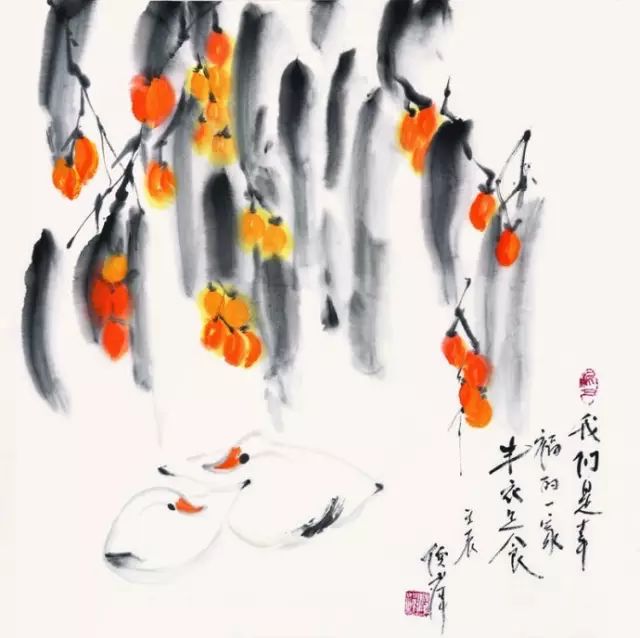 我们是幸
福的一家
丰衣足食
壬辰